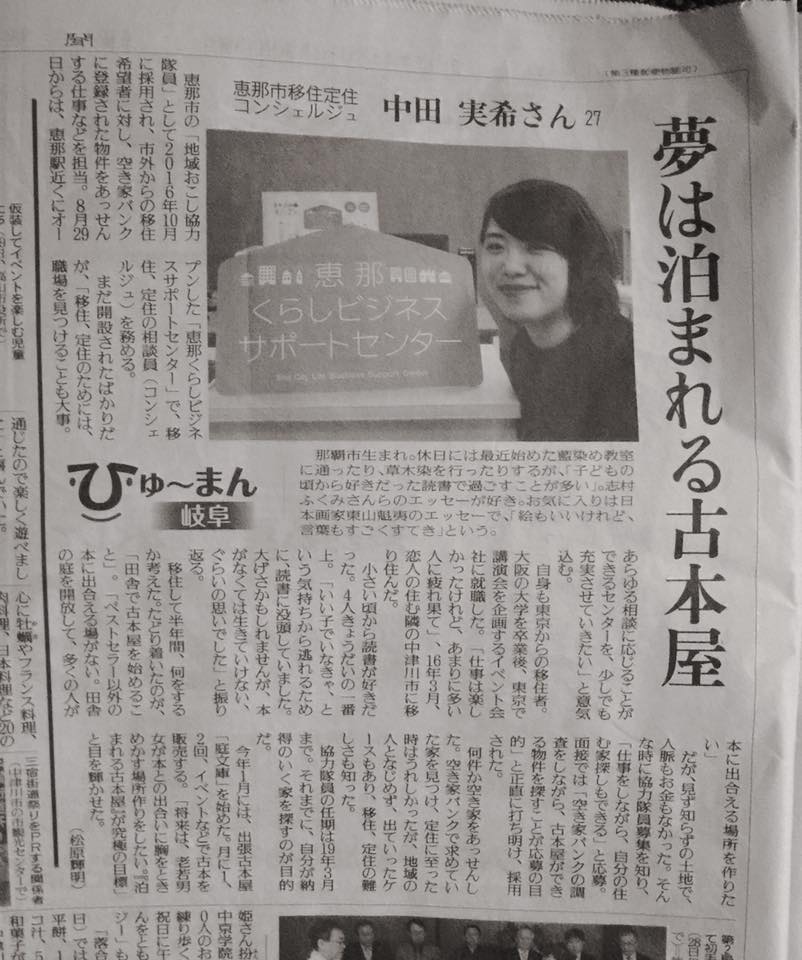 (第三種郵便物認可)
夢は泊まれる古本屋
恵那市移住定住
コンシェルジュ
中田 実希さん 27
恵那
くらしビジネス
サポートセンター
恵那市の「地域おこし協力
隊員」として2016年10月
に採用され、市外からの移住
希望者に対し、空き家バンク
に登録された物件をあっせん
する仕事などを担当。8月29
日からは、恵那駅近くにオー
プンした「恵那くらしビジネ
スサポートセンター」で、移
住、定住の相談員(コンシェ
ルジュ)を務める。
まだ開設されたばかりだ
が、「移住、定住のためには、
職場を見つけることも大事。
あらゆる相談に応じることが
できるセンターを、少しでも
充実させていきたい」と意気
込む。
自身も東京からの移住者。
大阪の大学を卒業後、東京で
講演会を企画するイベント会
社に就職した。「仕事は楽し
かったけれど、あまりに多い
人に疲れ果て」、16年3月、
恋人の住む隣の中津川市に移
り住んだ。
小さい頃から読書が好きだ
った。4人きょうだいの一番
上。「いい子でいなきゃ、と
いう気持ちから逃れるため
に、読書に没頭していました。
大げさかもしれませんが、本
がなくては生きていけない、
ぐらいの思いでした」と振り
返る。
移住して半年間、何をする
か考えた。たどり着いたのが、
「田舎で古本屋を始めるこ
と」。「ベストセラー以外の
本に出合える場がない。田舎
の庭を開放して、多くの人が
本に出合える場所を作りた
い」
だが、見ず知らずの土地で、
人脈もお金もなかった。そん
な時に協力隊員募集を知り、
「仕事をしながら、自分の住
む家探しもできる」と応募。
面接では「空き家バンクの調
査をしながら、古本屋ができ
る物件を探すことが応募の目
的」と正直に打ち明け、採用
された。
何件か空き家をあっせんし
た。空き家バンクで求めてい
た家を見つけ、定住に至った
時はうれしかったが、地域の
人となじめず、出ていったケ
ースもあり、移住、定住の難
しさも知った。
協力隊員の任期は19年3月
まで。それまでに、自分が納
得のいく家を探すのが目的
だ。
今年1月には、出張古本屋
「庭文庫」を始めた。月に1、
2回、イベントなどで古本を
販売する。「将来は、老若男
女が本との出合いに胸をとき
めかす場所作りをしたい。『泊
まれる古本屋』が究極の目標」
と目を輝かせた。
(松原輝明)
那覇市生まれ。休日には最近始めた藍染め教室
に通ったり、草木染を行ったりするが、「子どもの
頃から好きだった読書で過ごすことが多い」。志村
ふくみさんらのエッセーが好き。お気に入りは日
本画家東山魁夷のエッセーで、「絵もいいけれど、
言葉もすごくすてき」という。
ひゅ〜まん
岐阜
仮装してイベントを楽しむ児童
通じたので楽しく遊べまし
心に牡蠣やフランス料理、
肉料理、日本料理など20の
三宿街道祭りをPRする関係者
(中津川市の市観光センターで)
姫さん扮
中京学院
0人のお
練り歩く
祝日に午
んをとも
ジー」も
「落合
日)では
平餅、1
コ汁、5
和菓子が